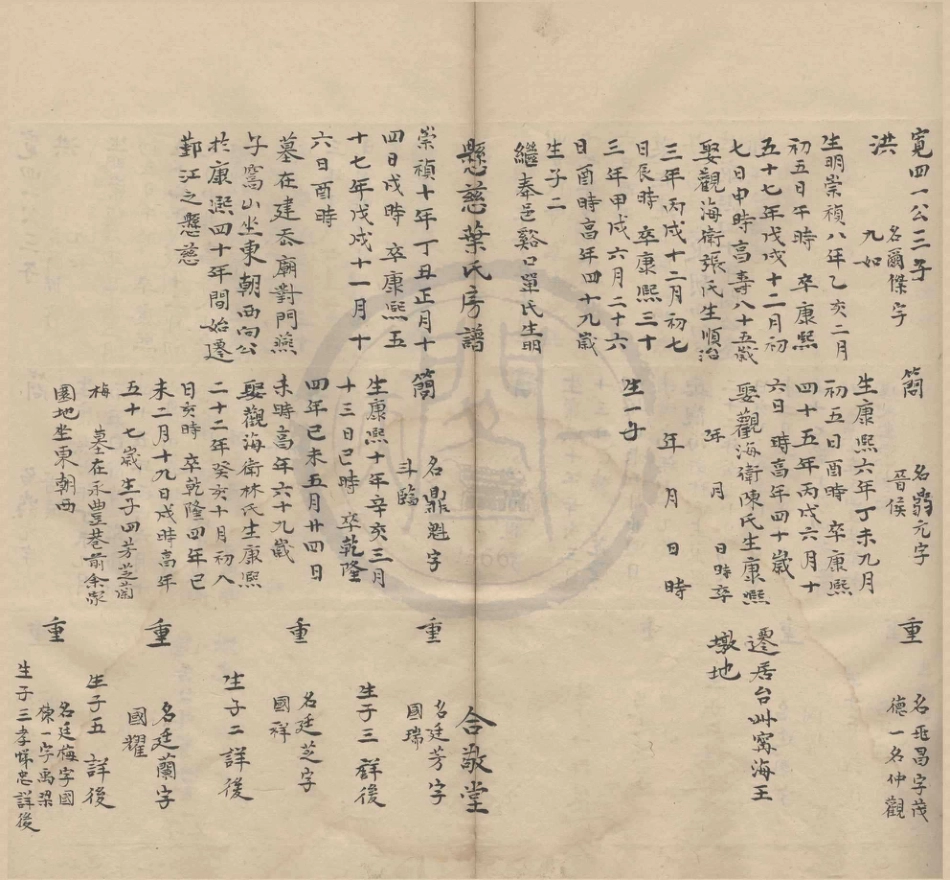 寬四一公三子
洪
名爾傑字
九如
生明崇禎八年乙亥二月
初五日午時 卒康熙
五十七年戊戌十二月初
七日申時高壽八十五歲
娶觀海衛張氏生順治
三年丙戌十二月初七
日辰時 卒康熙三十
三年甲戌六月二十六
日酉時高年四十九歲
生子二
繼奉邑谿口單氏生明
懸慈葉氏房譜
崇禎十年丁丑正月十
四日戌時 卒康熙五
十七年戊戌十一月十
六日酉時
墓在建岙廟對門燕
子窩山坐東朝西向公
於康熙四十年間始遷
鄞江之懸慈
簡
名鼎元字
晉侯
生康熙六年丁未九月
初五日酉時 卒康熙
四十五年丙戌六月十
六日 時高年四十歲
娶觀海衛陳氏生康熙
年 月 日時卒
年 月 日 時
生一子
簡
名鼎魁字
斗臨
生康熙十年辛亥三月
十三日巳時 卒乾隆
四年己未五月廿四日
未時高年六十九歲
娶觀海衛林氏生康熙
二十二年癸亥十月初八
日亥時 卒乾隆四年己
未二月十九日戌時高年
五十七歲生子四芳芝蘭
梅 墓在永豐巷前余家
園地坐東朝西
重
名兆昌字茂
德一名仲觀
遷居台州寧海王
墩地
合敬堂
重
名廷芳字
國瑞
生子三詳後
重
名廷芝字
國祥
生子二詳後
重
名廷蘭字
國耀
生子五 詳後
重
名廷梅字國
棟一字禹梁
生子三孝悌忠詳後